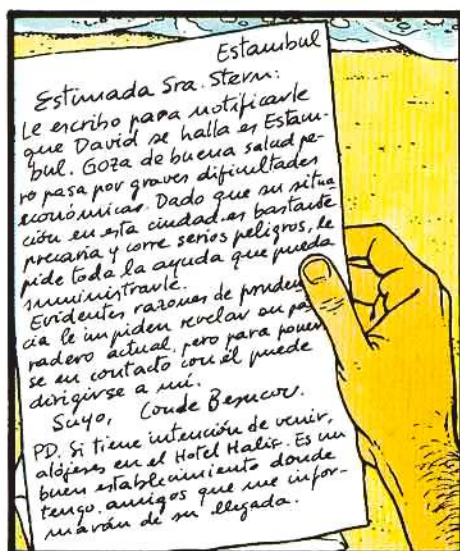 Estambul
Estimada Sra. Stern:
Le escribo para notificarle
que David se halla en Estam-
bul. Goza de buena salud pe-
ro pasa por graves dificultades
económicas. Dado que su situa
ción en esta ciudad es bastante
precaria y corre serios peligros, le
pide toda la ayuda que pueda
suministrarle.
Evidentes razones de pruden
cia le impiden revelar su pa
radero actual, pero para poner
se en contacto con él puede
dirigirse a mí.
Suyo, Conde
PD. Si tiene intención de venir,
alójese en el Hotel Halic. Es un
buen establecimiento donde
tengo amigos que me infor-
marán de su llegada.